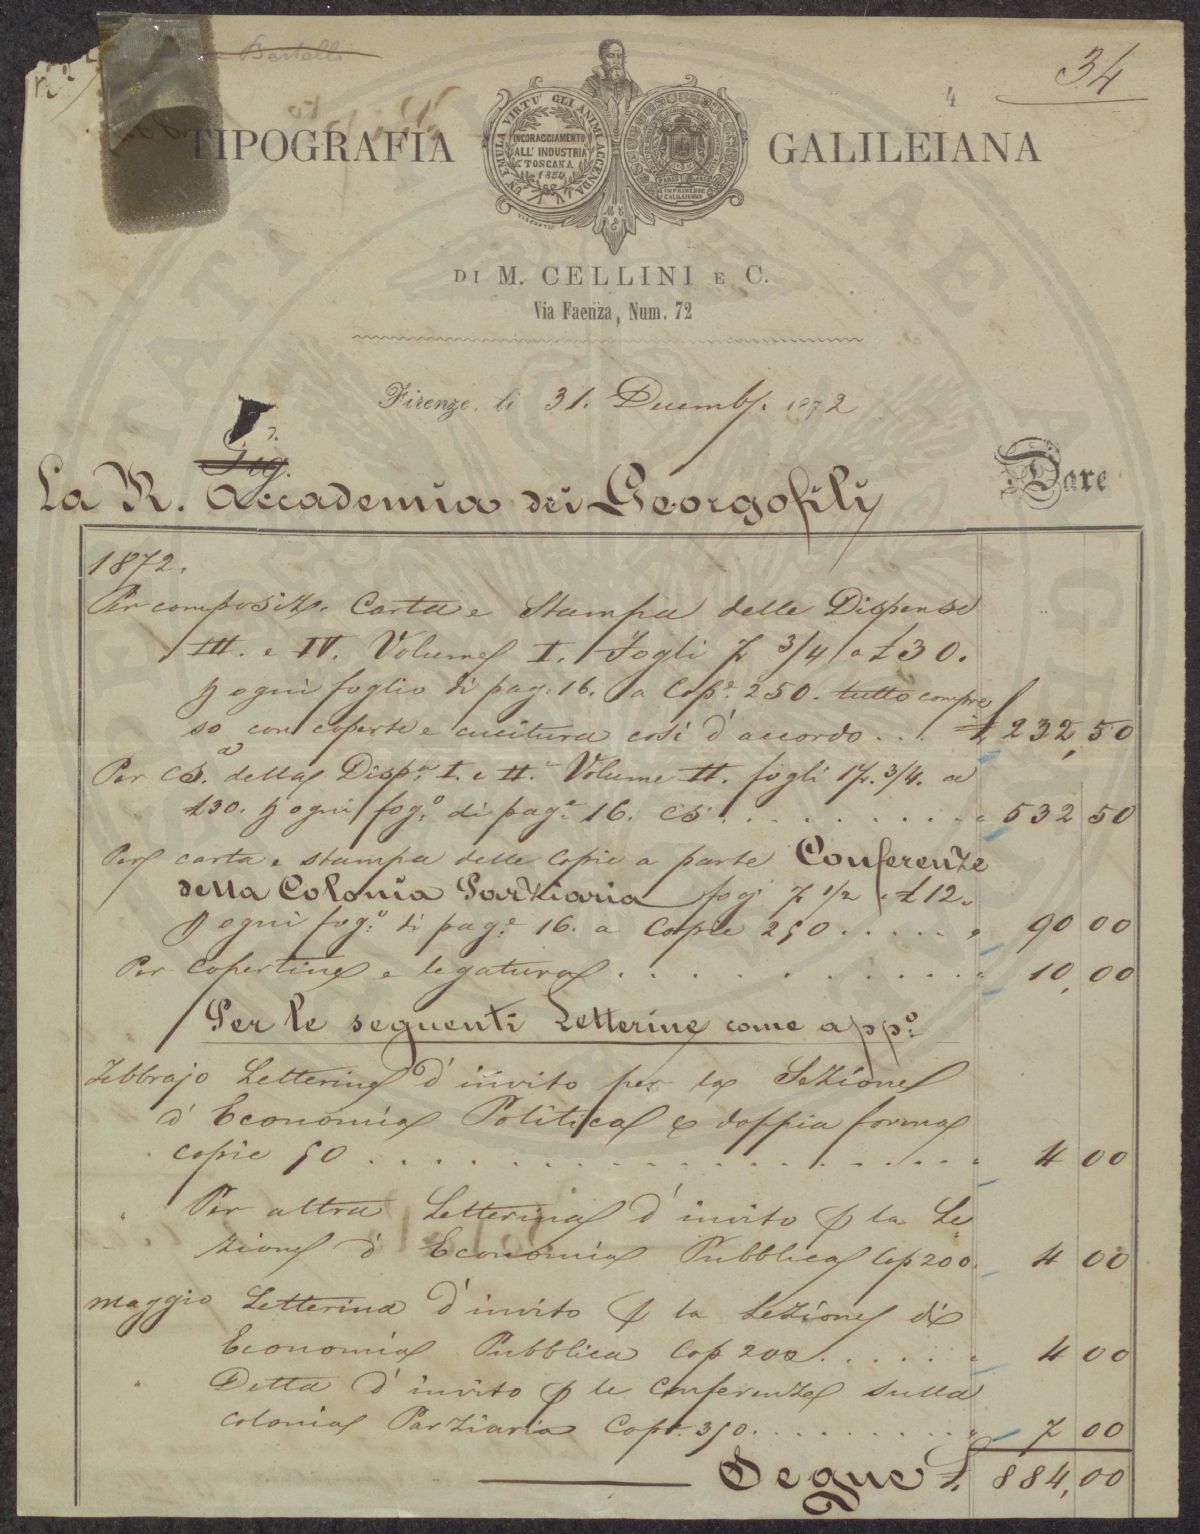 34
4
TIPOGRAFIA GALILEIANA
UN' EMULA VIRTÙ GLI ANIMI ACCENDA
INCORAGGIAMENTO
ALL' INDUSTRIA
TOSCANA
1854
DI M. CELLINI E C.
Via Faenza, Num. 72
Firenze, li 31. Decemb. 1872
Sig.
La R. Accademia dei Georgofily Dare
1872.
Per composiz. Carta e Stampa delle Dispense
III. e IV. Volume I. Fogli 7 3/4 a £30.
p ogni foglio di pag. 16. a Cop. 250. tutto compre
so con coperte e cucitura così d'accordo . . . £ 232,50
Per Cs. della Disp. I. e II. Volume II. fogli 17. 3/4. a
£30. p ogni fog.o di pag.e 16. Cs . . . . . . . . . . " 532 50
Per carta e stampa delle Copie a parte Conferenze
della Colonia Parziaria fog. 7 1/2 a £12.
p ogni fog.o di pag.e 16. a Copie 250 . . . . . " 90 00
Per Copertine e legatura . . . . . . . . . . . " 10,00
Per le seguenti Letterine come app.o
Febbrajo Letterine d'invito per la Sezione
d'Economia Politica e doppia forma
copie 50 . . . . . . . . . . . . . . . . . . " 4 00
" Per altra Letterina d'invito p la Le
zione d'Economia Pubblica Cop 200. " 4 00
maggio Letterina d'invito p la Lezione di
Economia Pubblica Cop 200 . . . . . . " 4 00
" Detta d'invito p le Conferenze sulla
Colonia Parziaria Cop. 350 . . . . . . . . . " 7 00
Segue £. 884,00